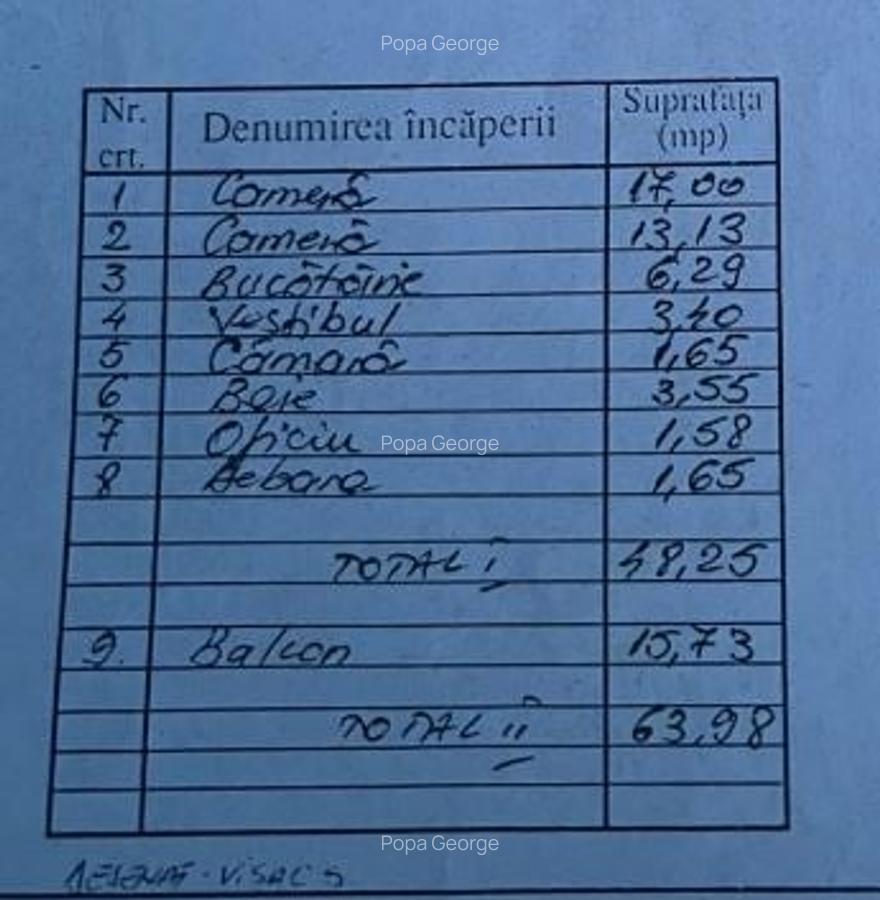 Popa George
Nr. crt. Denumirea încăperii Suprafața (mp)
1 Cameră 17,00
2 Cameră 13,13
3 Bucătărie 6,29
4 Vestibul 3,40
5 Cămară 1,65
6 Baie 3,55
7 Oficiu 1,58
Popa George
8 Debara 1,65
TOTAL I 48,25
9. Balcon 15,73
TOTAL II 63,98
Popa George